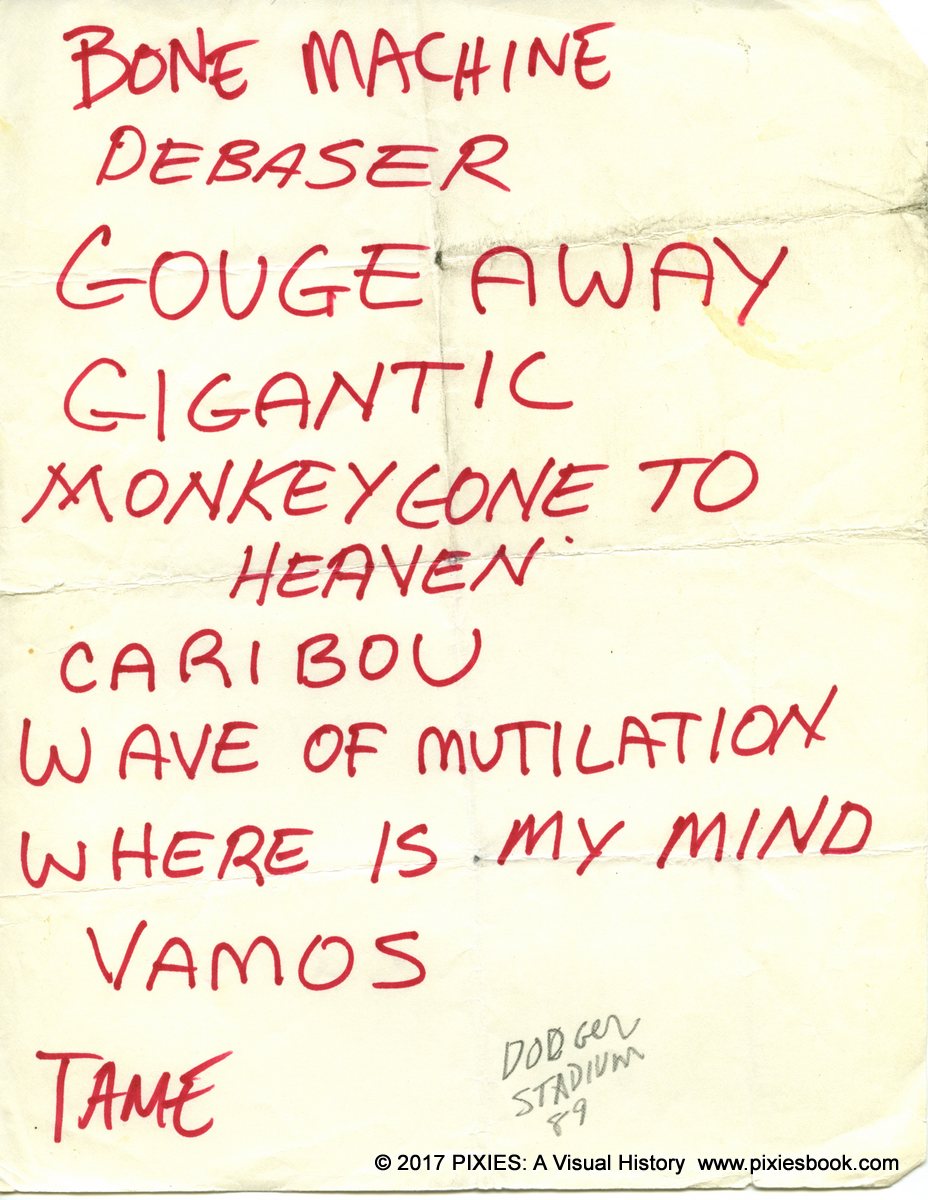 BONE MACHINE
DEBASER
GOUGE AWAY
GIGANTIC
MONKEY GONE TO
HEAVEN
CARIBOU
WAVE OF MUTILATION
WHERE IS MY MIND
VAMOS
TAME
DODGER
STADIUM
89
© 2017 PIXIES: A Visual History www.pixiesbook.com